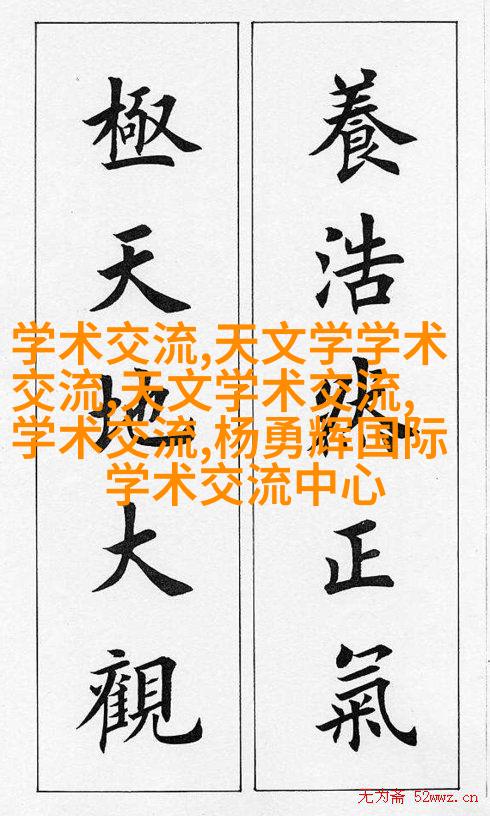 養浩然正氣
極天地大觀
学术交流,天文学学术
交流,天文学术交流,
学术交流,杨勇辉国际
学术交流中心
无为斋 52wwz.cn